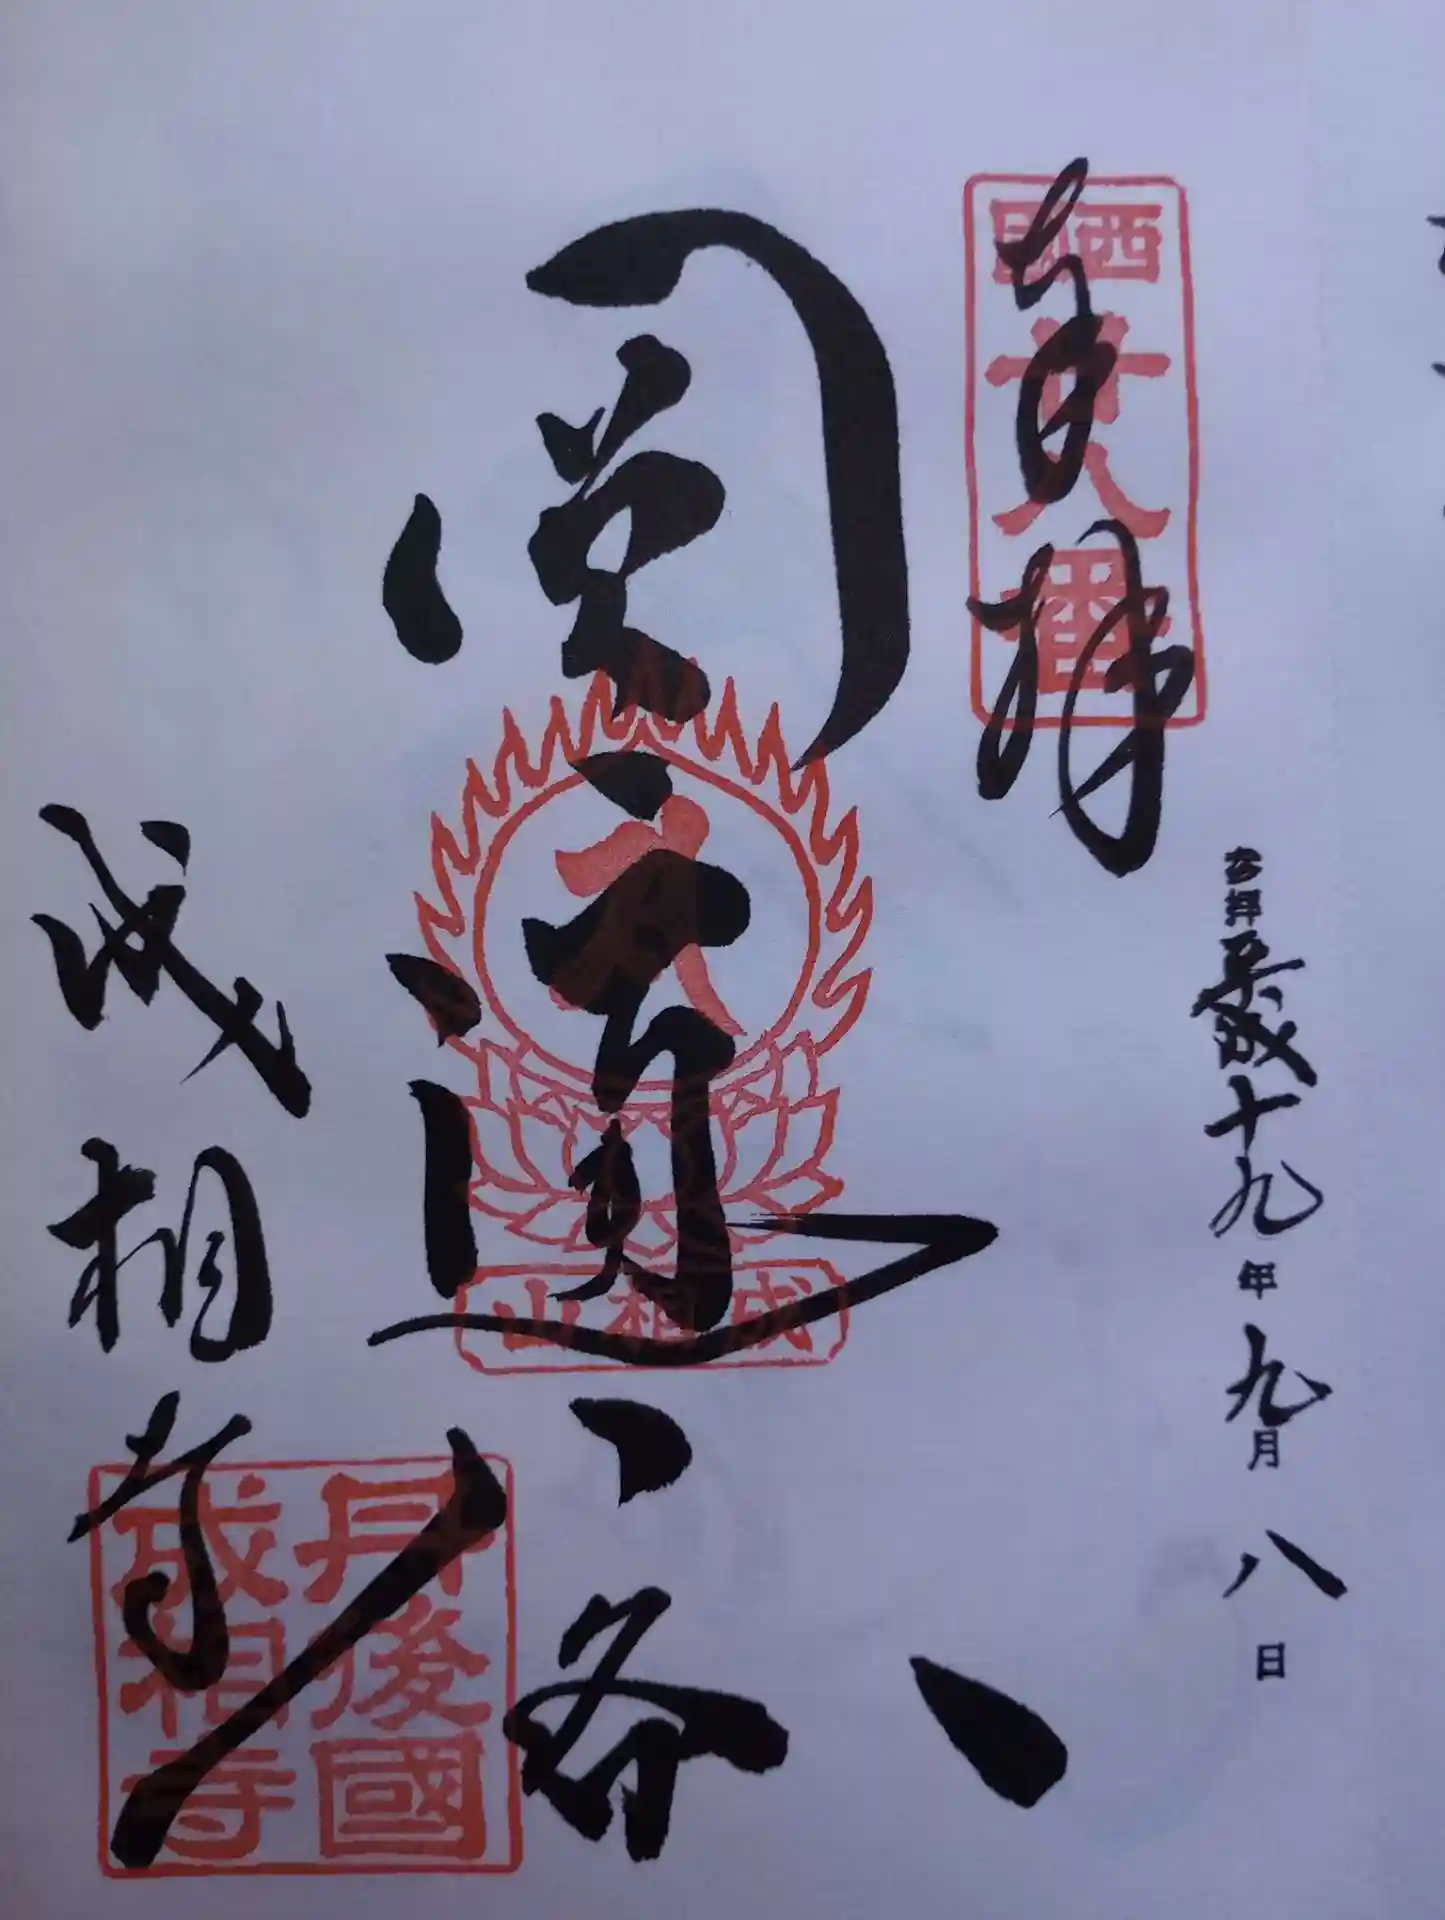 奉拝
西国
廿八番
参拝 平成十九年九月八日
圓通
成相山
成相寺
丹後國
成相寺